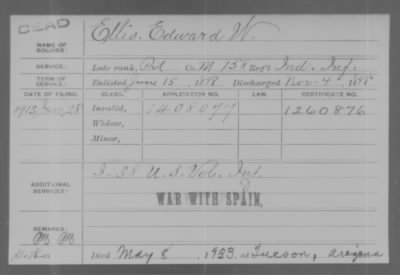 DEAD
Ellis, Edward W.
NAME OF SOLDIER:
SERVICE: Late rank, Pvt Co. M 158 Reg't Ind. Inf.
TERM OF SERVICE: Enlisted June 15, 1898 Discharged Nov. 4, 1898
DATE OF FILING. CLASS. APPLICATION NO. LAW. CERTIFICATE NO.
28 Invalid, 1408077 1260876
Widow,
Minor,
ADDITIONAL SERVICES: I. 38 U.S. Vol. Inf.
WAR WITH SPAIN.
REMARKS:
Died May 8, 1933, at Tucson, Arizona